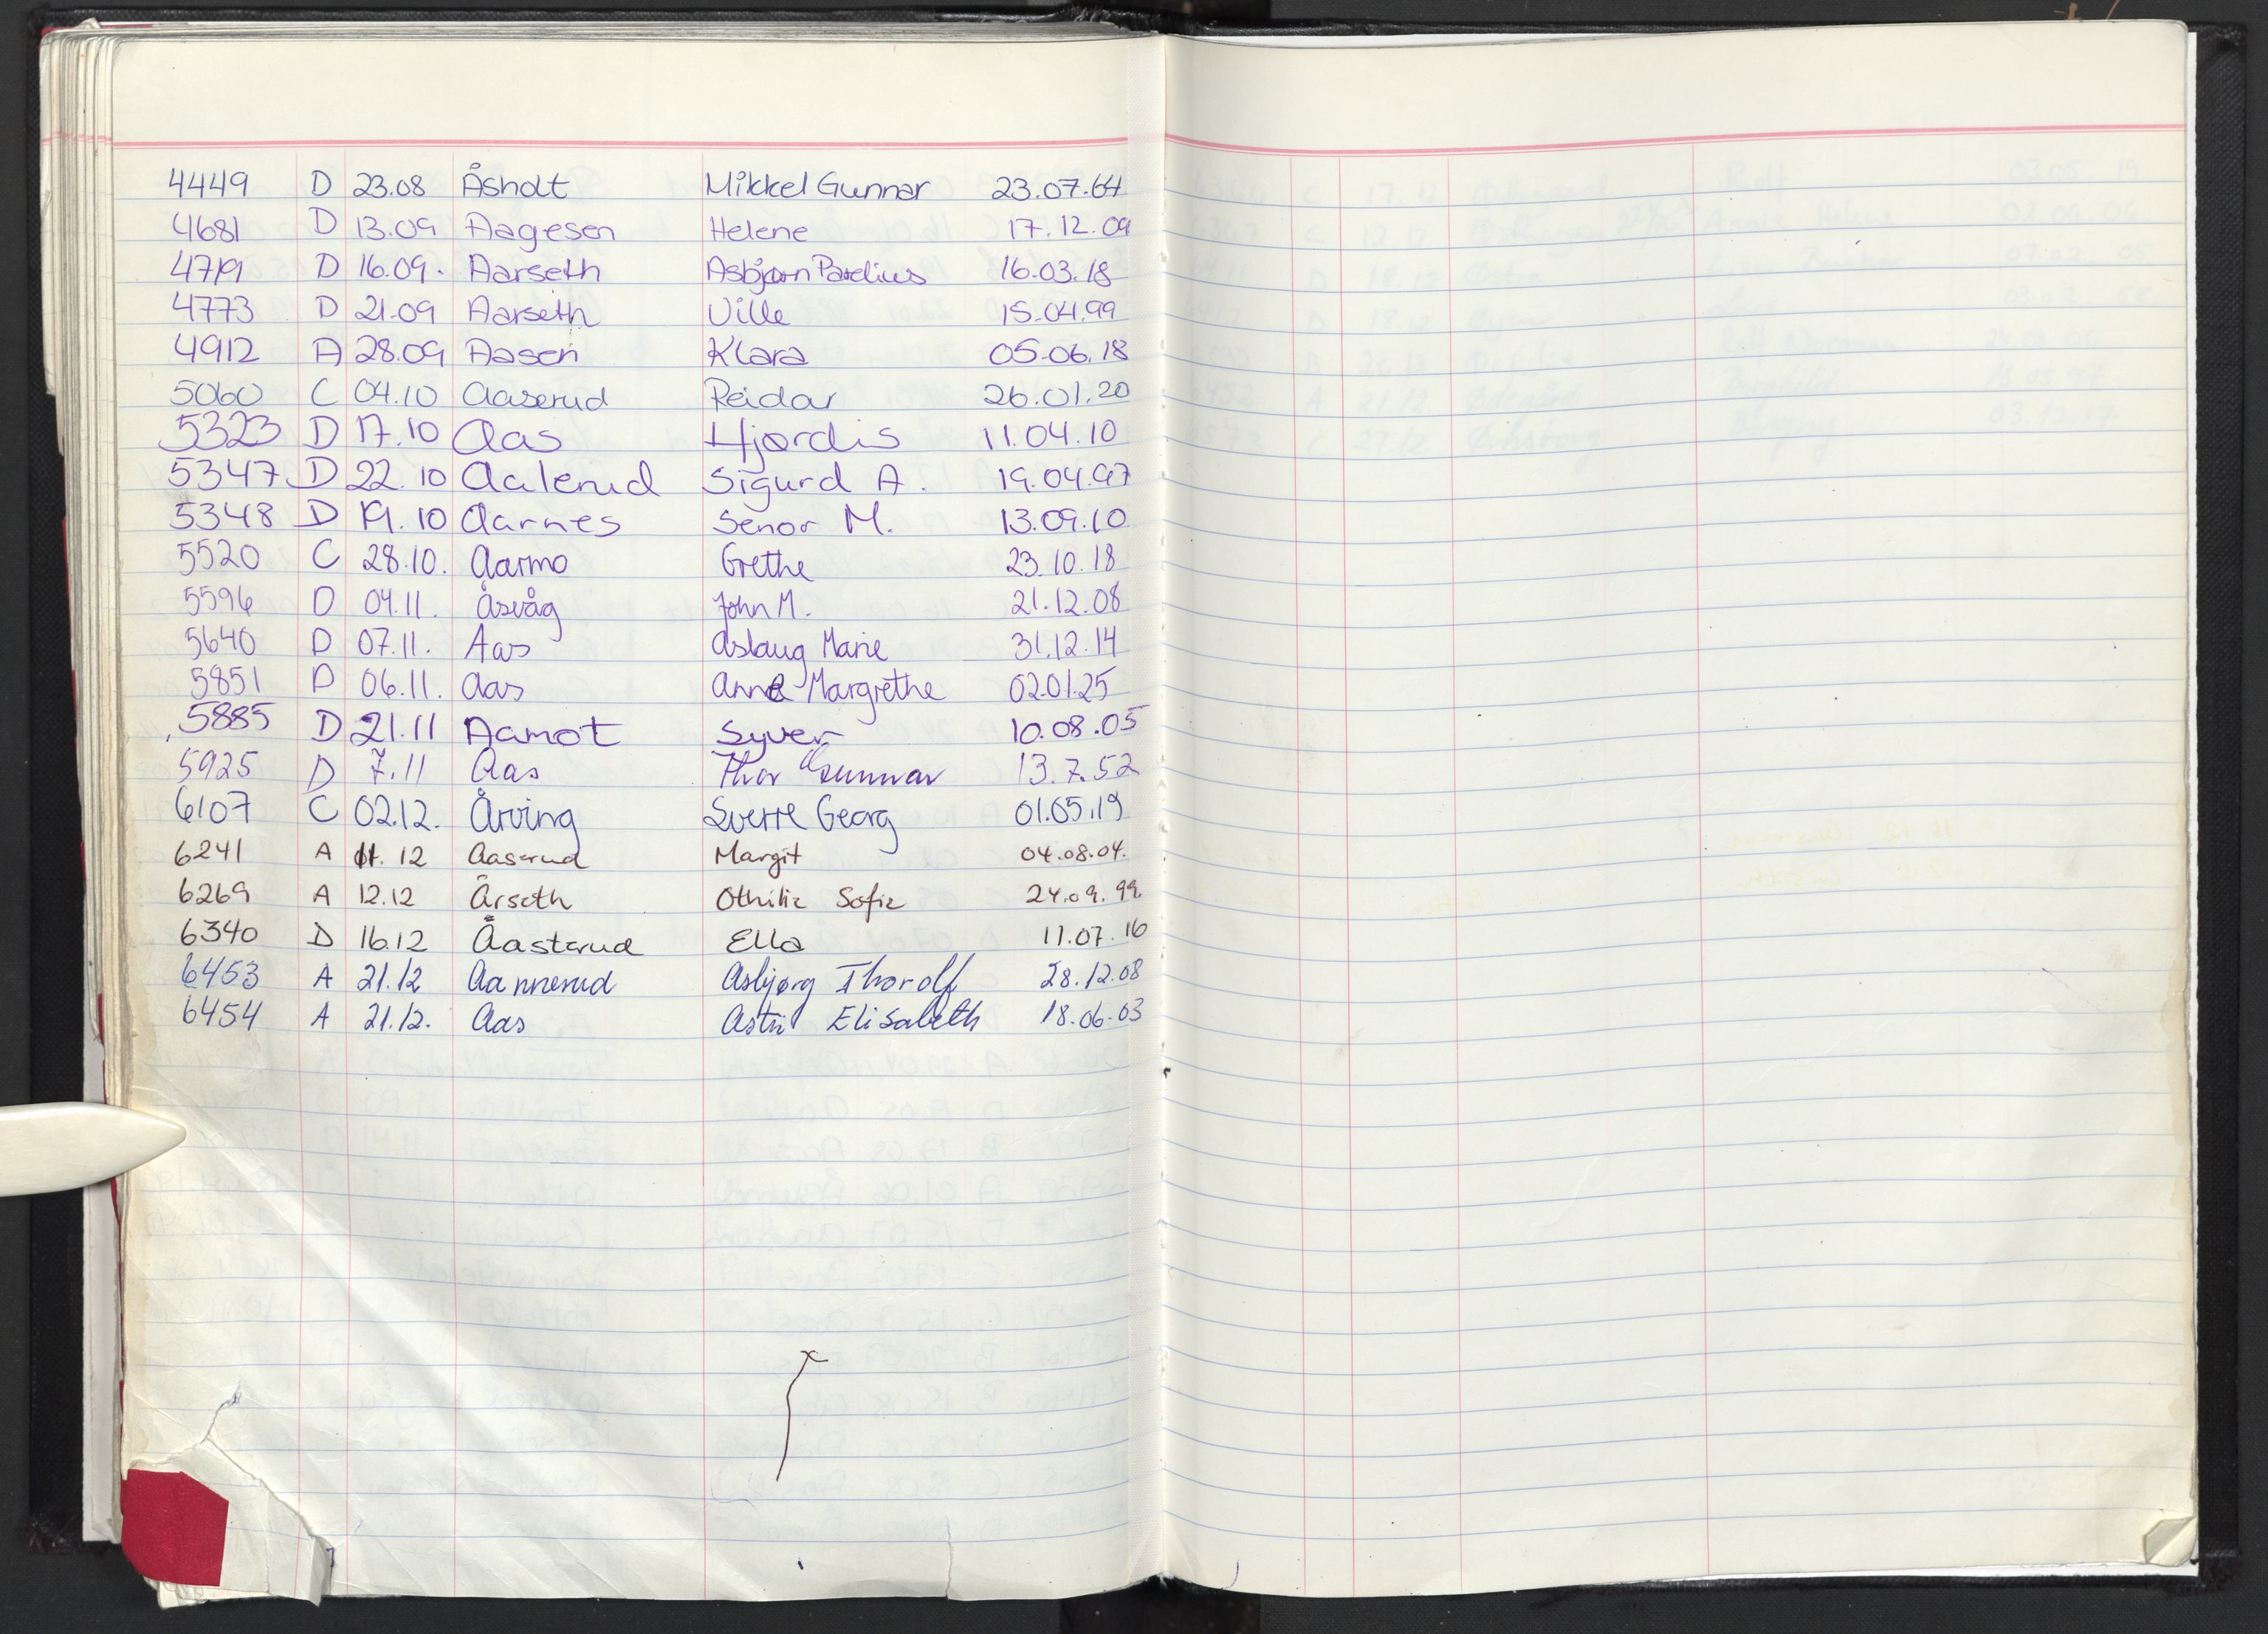 4449 D 23.08 Åsholt Mikkel Gunnar 23.07.64
4681 D 13.09 Aagesen Helene 17.12.09
4719 D 16.09. Aarseth Asbjørn Paselius 16.03.18
4773 D 21.09 Aarseth Ville 15.04.99
4912 A 28.09 Aasen Klara 05.06.18
5060 C 04.10 Aaserud Reidar 26.01.20
5323 D 17.10 Aas Hjørdis 11.04.10
5347 D 22.10 Aalerud Sigurd A. 19.04.97
5348 D 19.10 Aarnes Senor M. 13.09.10
5520 C 28.10. Aarmo Grethe 23.10.18
5596 D 04.11. Åsvåg John M. 21.12.08
5640 D 07.11. Aas Aslaug Marie 31.12.14
5851 D 06.11. Aas Anne Margrethe 02.01.25
5885 D 21.11 Aamot Syver 10.08.05
5925 D 7.11 Aas Thor Gunnar 13.7.52
6107 C 02.12. Årving Sverre Georg 01.05.19
6241 A 11.12 Aaserud Margit 04.08.04.
6269 A 12.12 Årseth Othilie Sofie 24.09.99
6340 D 16.12 Åasterud Ella 11.07.16
6453 A 21.12 Aannerud Asbjørg Thorolf 28.12.08
6454 A 21.12. Aas Astri Elisabeth 18.06.03